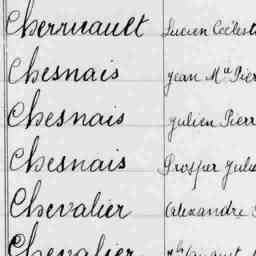 Cherruault Lucien Céleste
Chesnais Jean Mie Pier
Chesnais Julien Pierr
Chesnais Prosper Juli
Chevalier Alexandre
Chevalier